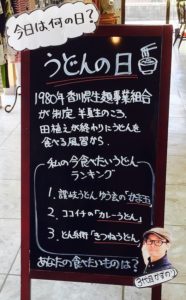 今日は何の日?
うどんの日
1980年香川県生麺事業組合
が制定 半夏生のころ、
田植えが終わりにうどんを
食べる風習から。
私の今食べたいうどん
ランキング
1. 讃岐うどん
2. ココイチの「カレーうどん」
3. どん兵衛「きつねうどん」
あなたの食べたいものは?
3代目かずの